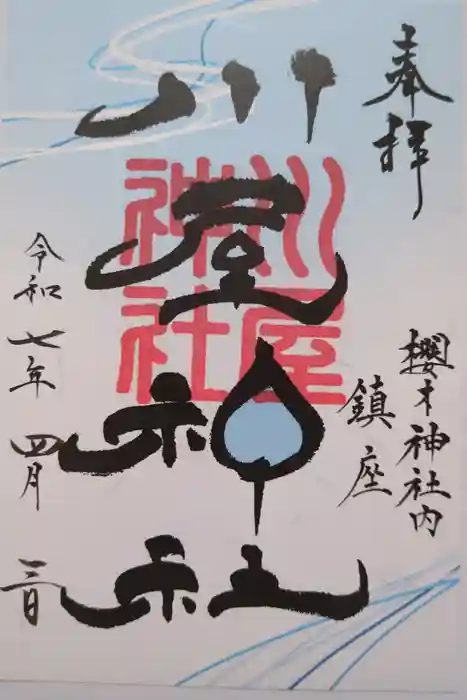 奉拝
川屋神社
川屋神社
櫻木神社内
鎮座
令和七年四月二日